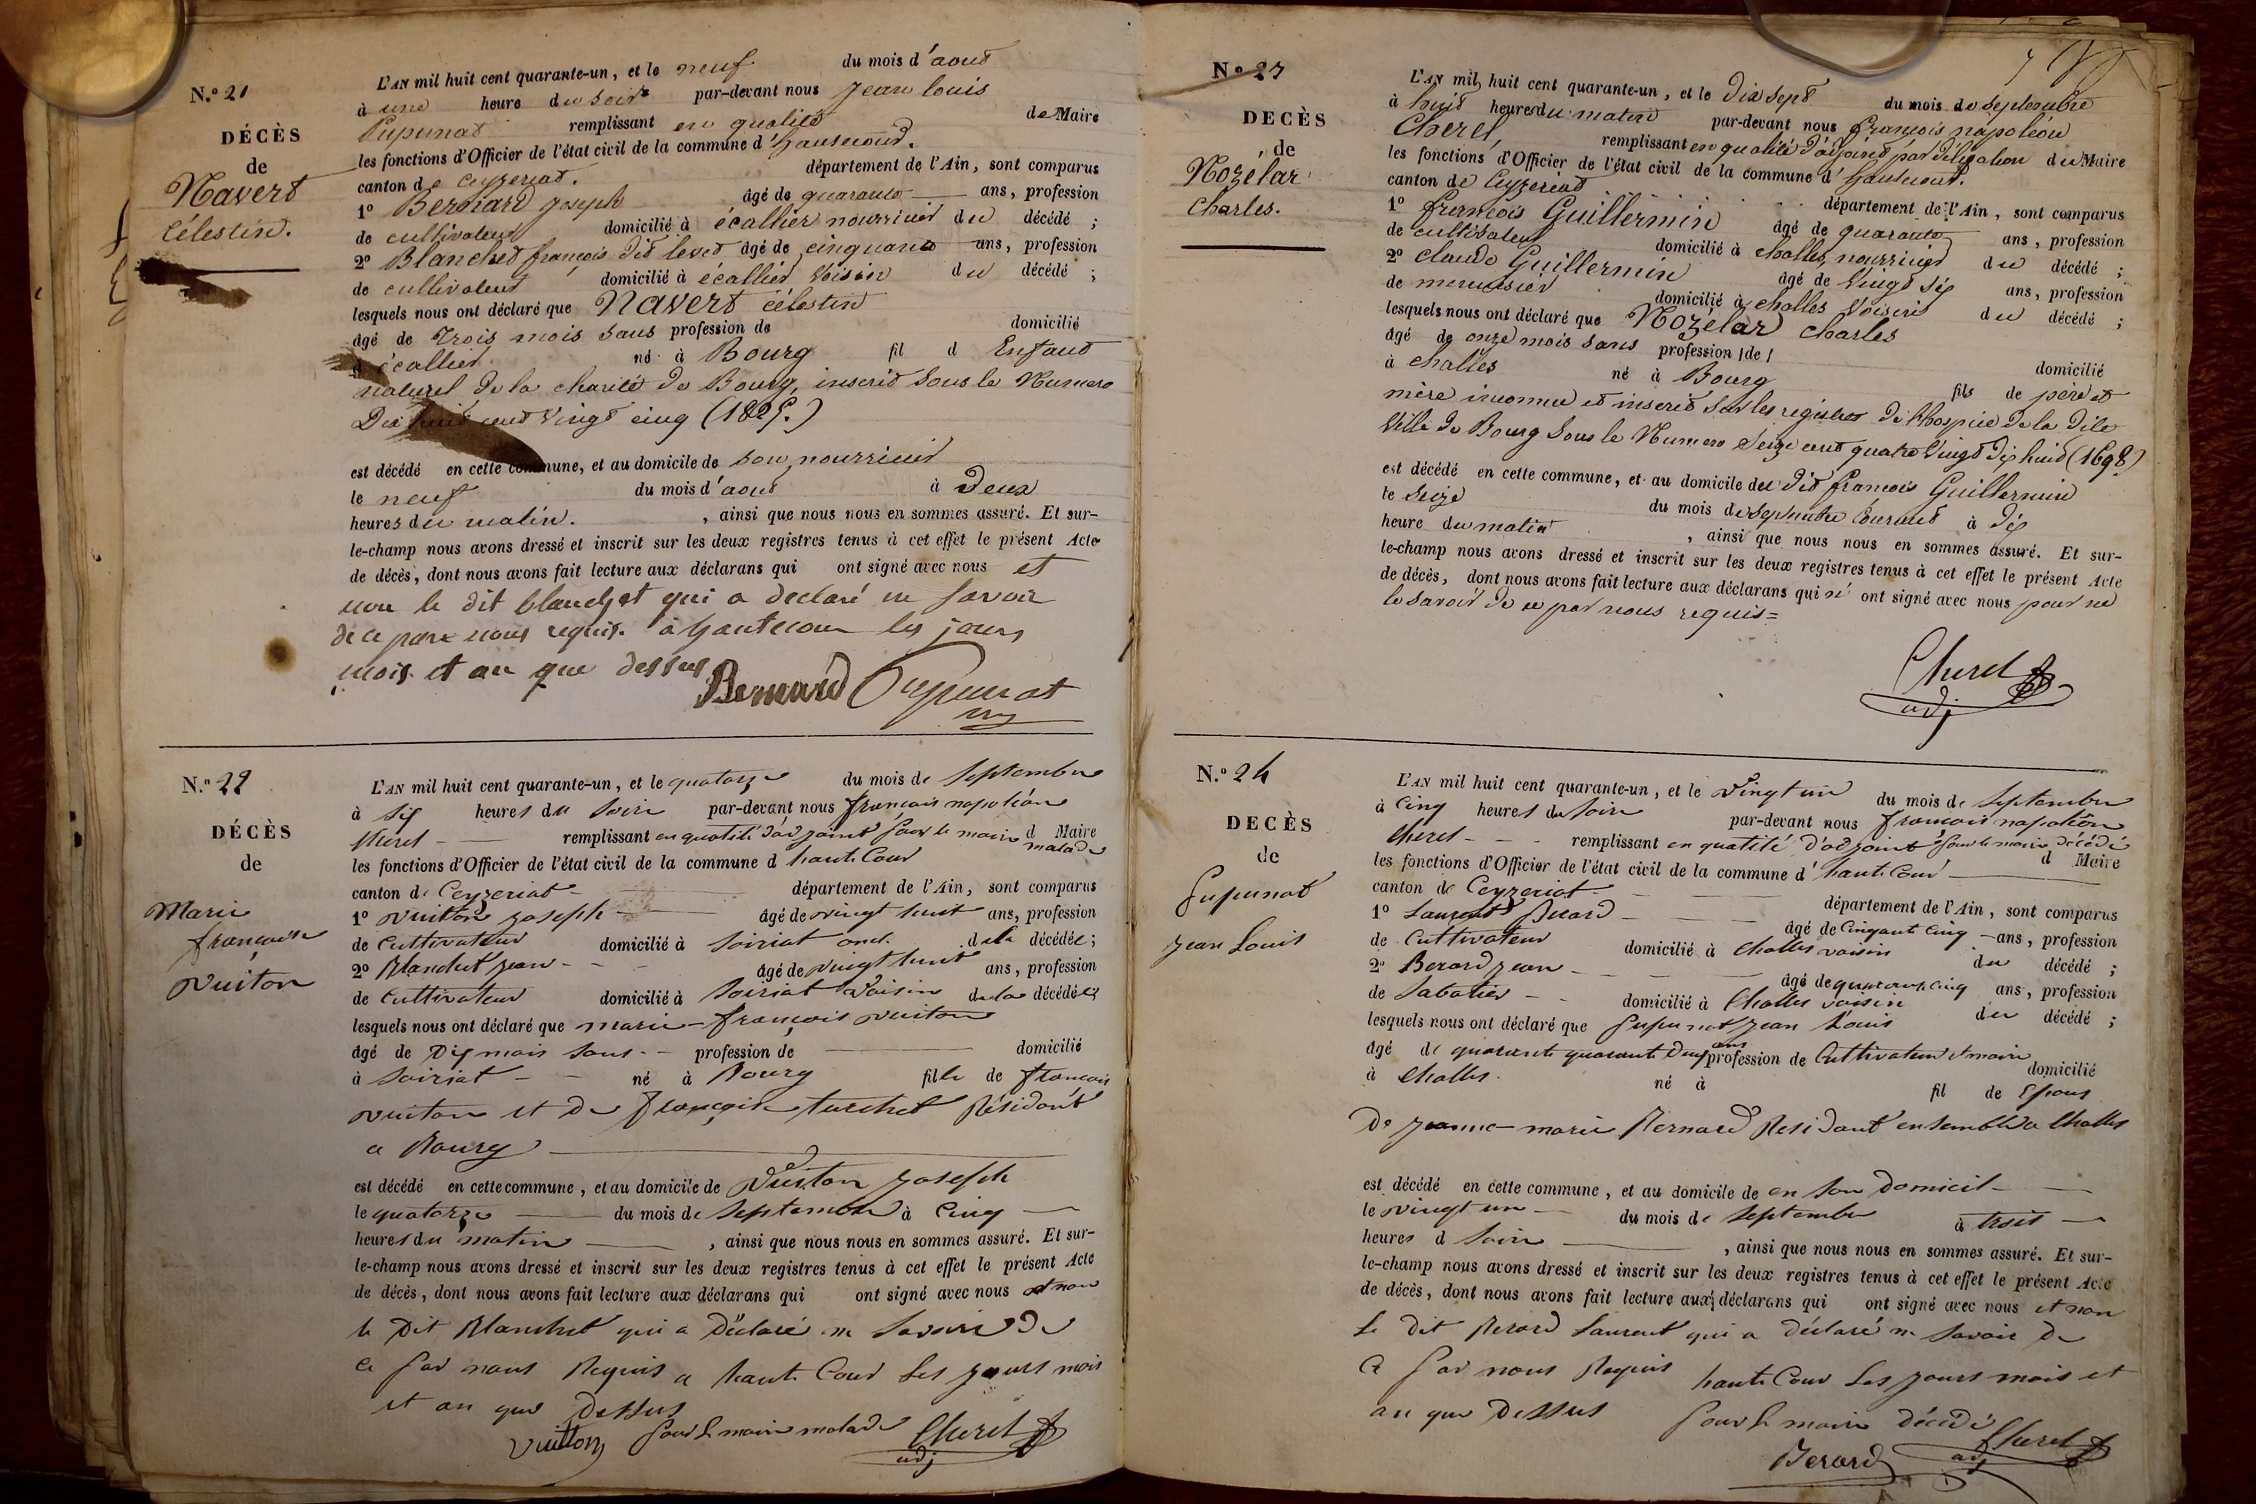 N.º 21
DÉCÈS
de
Navert
Célestin.
L'AN mil huit cent quarante-un, et le neuf du mois d'aout
à une heure du soir par-devant nous Jean louis
Pupunat remplissant en qualité de Maire
les fonctions d'Officier de l'état civil de la commune d'hautecour.
canton de Ceyzeriat. département de l'Ain, sont comparus
1º Bernard Joseph âgé de quarante ans, profession
de cultivateur domicilié à écallier nourricier du décédé ;
2º Blanchet françois dit levet âgé de cinquante ans, profession
de cultivateur domicilié à écallier voisin du décédé ;
lesquels nous ont déclaré que Navert Célestin
âgé de trois mois sans profession de domicilié
à écallier né à Bourg fil d Enfant
naturel de la charité de Bourg, inscrit sous le Numero
Dix huit cent vingt cinq (1825.)
est décédé en cette commune, et au domicile de son nourricier
le neuf du mois d'aout à Deux
heures du matin. , ainsi que nous nous en sommes assuré. Et sur-
le-champ nous avons dressé et inscrit sur les deux registres tenus à cet effet le présent Acte
de décès, dont nous avons fait lecture aux déclarans qui ont signé avec nous et
non le dit blanchet qui a declaré ne savoir
de ce par nous requis. à hautecour les jours
mois et an que dessus
Bernard Pupunat
N.º 22
DÉCÈS
de
Marie
françoise
Vuiton
L'AN mil huit cent quarante-un, et le quatorze du mois de Septembre
à six heures du soire par-devant nous françois napoléon
Cherel remplissant en quatité d'adjoint pour le maire malade d Maire
les fonctions d'Officier de l'état civil de la commune d haute Cour
canton de Ceyzeriat département de l'Ain, sont comparus
1º Vuiton Joseph âgé de vingt huit ans, profession
de Cultivateur domicilié à Soiriat de la décédée ;
2º Blanchet Jean âgé de vingt huit ans, profession
de Cultivateur domicilié à Soiriat Voisin de la décédée
lesquels nous ont déclaré que marie françois Vuiton
âgé de Dix mois sans profession de domicilié
à Soiriat né à Bourg fille de françois
Vuiton et de françoise turchet Résidant
a Bourg
est décédé en cette commune, et au domicile de Vuiton Joseph
le quatorze du mois de Septembre à Cinq
heures du matin , ainsi que nous nous en sommes assuré. Et sur-
le-champ nous avons dressé et inscrit sur les deux registres tenus à cet effet le présent Acte
de décès, dont nous avons fait lecture aux déclarans qui ont signé avec nous et non
le Dit Blanchet qui a Déclaré ne Savoire De
Ce par nous Requis a haute Cour Les jours mois
et an que Dessus
Vuiton pour le maire malade Cherel
adj
N.º 23
DECÈS
de
Nozélar
Charles.
L'AN mil huit cent quarante-un, et le Dix sept du mois de Septembre
à huit heures du matin par-devant nous françois napoléon
Cherel remplissant en qualité d'adjoint par délégation du Maire
les fonctions d'Officier de l'état civil de la commune d'hautecour.
canton de Ceyzeriat département de l'Ain, sont comparus
1º françois Guillermin âgé de quarante ans, profession
de cultivateur domicilié à challes, nourricier du décédé ;
2º claude Guillermin âgé de vingt six ans, profession
de menuisier domicilié à challes voisin du décédé ;
lesquels nous ont déclaré que Nozélar Charles
âgé de onze mois sans profession de domicilié
à challes né à Bourg fils de père et
mère inconnu et inscrit sur les registres de l'hospice de la dite
Ville de Bourg sous le Numero Seize cent quatre vingt dix huit (1698)
est décédé en cette commune, et au domicile du dit françois Guillermin
le Seize du mois de Septembre courant à dix
heure du matin , ainsi que nous nous en sommes assuré. Et sur-
le-champ nous avons dressé et inscrit sur les deux registres tenus à cet effet le présent Acte
de décès, dont nous avons fait lecture aux déclarans qui n' ont signé avec nous pour ne
le savoir de ce par nous requis =
Cherel
adj
N.º 24
DECÈS
de
Pupunat
Jean Louis
L'AN mil huit cent quarante-un, et le Vingt un du mois de Septembre
à Cinq heures du soire par-devant nous françois napoléon
Cherel remplissant en quatité d'adjoint pour le maire décédé d Maire
les fonctions d'Officier de l'état civil de la commune d'haute Cour
canton de Ceyzeriat département de l'Ain, sont comparus
1º Laurent Berard âgé de Cinqant Cinq ans, profession
de Cultivateur domicilié à Challes voisin du décédé ;
2º Berard Jean âgé de quarante cinq ans, profession
de Sabotier domicilié à Challes voisin du décédé ;
lesquels nous ont déclaré que Pupunat Jean Louis
âgé de quarante quarante Deux ans profession de Cultivateur et maire domicilié
à Challes. né à fil de Epoux
De Jeanne marie Bernard Residant ensemble a Challes
est décédé en cette commune, et au domicile de en Son Domicil
le vingt un du mois de Septembre à trois
heures d Soire , ainsi que nous nous en sommes assuré. Et sur-
le-champ nous avons dressé et inscrit sur les deux registres tenus à cet effet le présent Acte
de décès, dont nous avons fait lecture aux déclarans qui ont signé avec nous et non
Le Dit Berard Laurent qui a Déclaré ne Savoir De
Ce par nous Requis haute Cour Les jours mois et
an que Dessus pour le maire Décédé Cherel
Berard adj